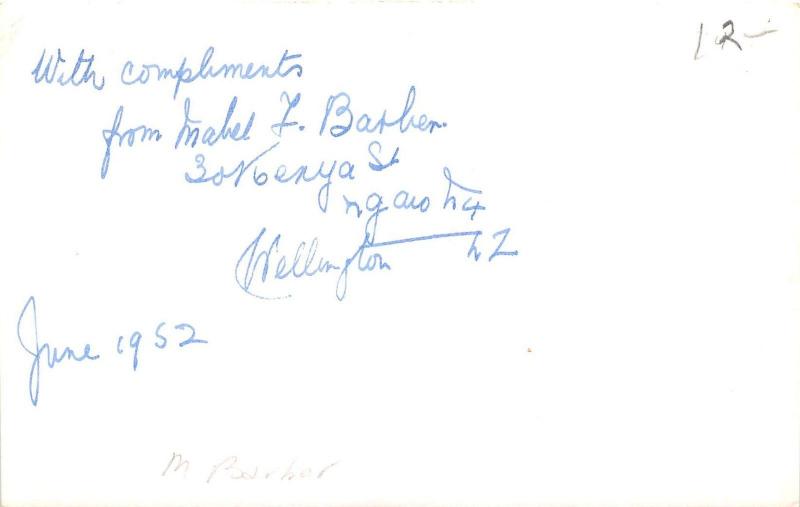 12-
With compliments
from Mabel F. Barber.
30 Kenya St
Ngaio N4
Wellington NZ
June 1952
M Barber